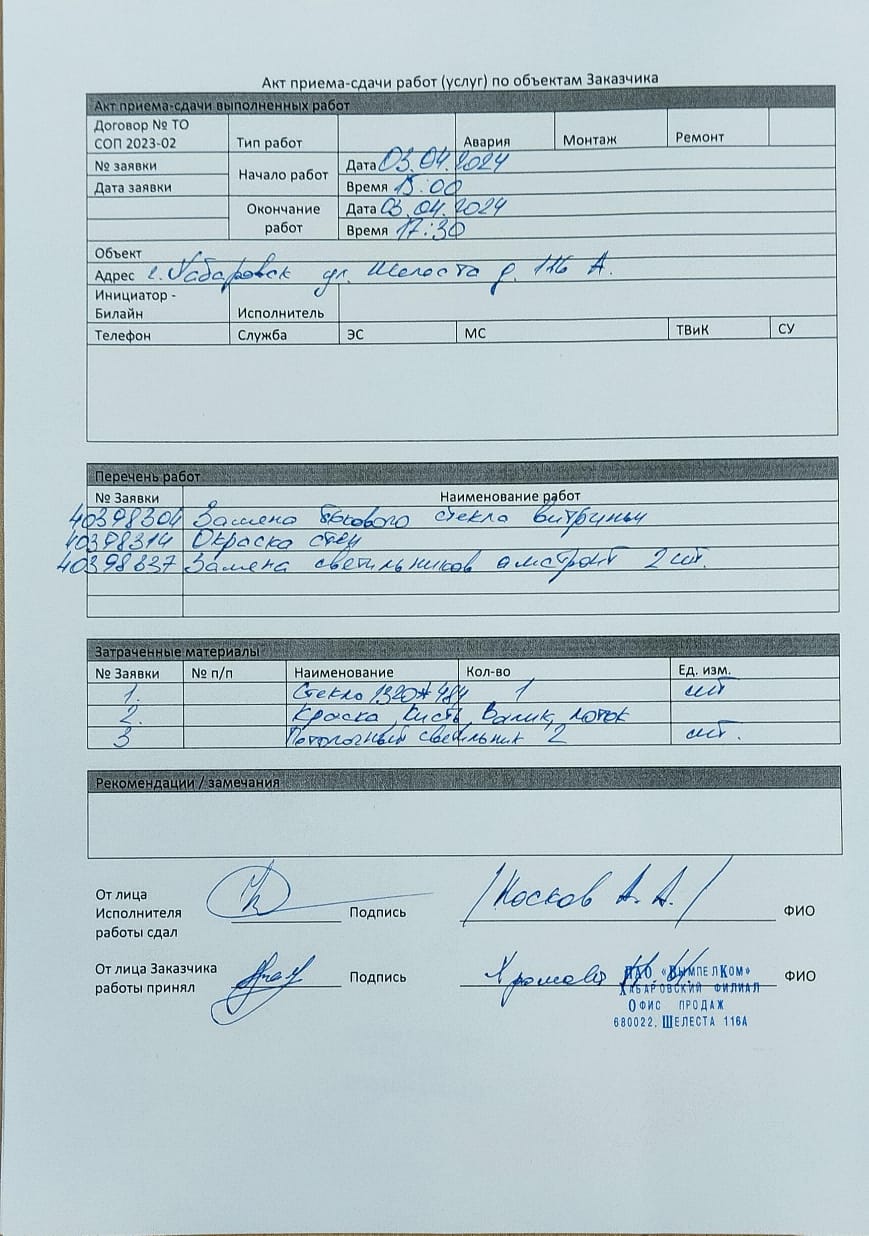 Акт приема-сдачи работ (услуг) по объектам Заказчика
Акт приема-сдачи выполненных работ
Договор № ТО СОП 2023-02 Тип работ Авария Монтаж Ремонт
№ заявки Начало работ Дата 03.04.2024
Дата заявки Время 15:00
Окончание работ Дата 03.04.2024
Время 17:30
Объект
Адрес г. Хабаровск ул. Шелеста д. 116 А.
Инициатор - Билайн Исполнитель
Телефон Служба ЭС МС ТВиК СУ
Перечень работ
№ Заявки Наименование работ
40398304 Замена бокового стекла витрины
40398314 Окраска стен
40398337 Замена светильников амстронг 2 шт.
Затраченные материалы
№ Заявки № п/п Наименование Кол-во Ед. изм.
1. Стекло 1320*484 1 шт
2. Краска, Кисть, Валик, лоток
3 Потолочный светильник 2 шт.
Рекомендации / замечания
От лица
Исполнителя Подпись /Носков А. А./ ФИО
работы сдал
От лица Заказчика Подпись ФИО
работы принял
ПАО «ВымпелКом»
Хабаровский филиал
Офис продаж
680022, Шелеста 116А